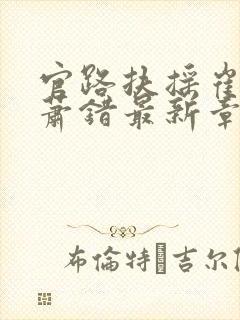 官路扶摇崔
萧错最新章
布倫特·吉尔